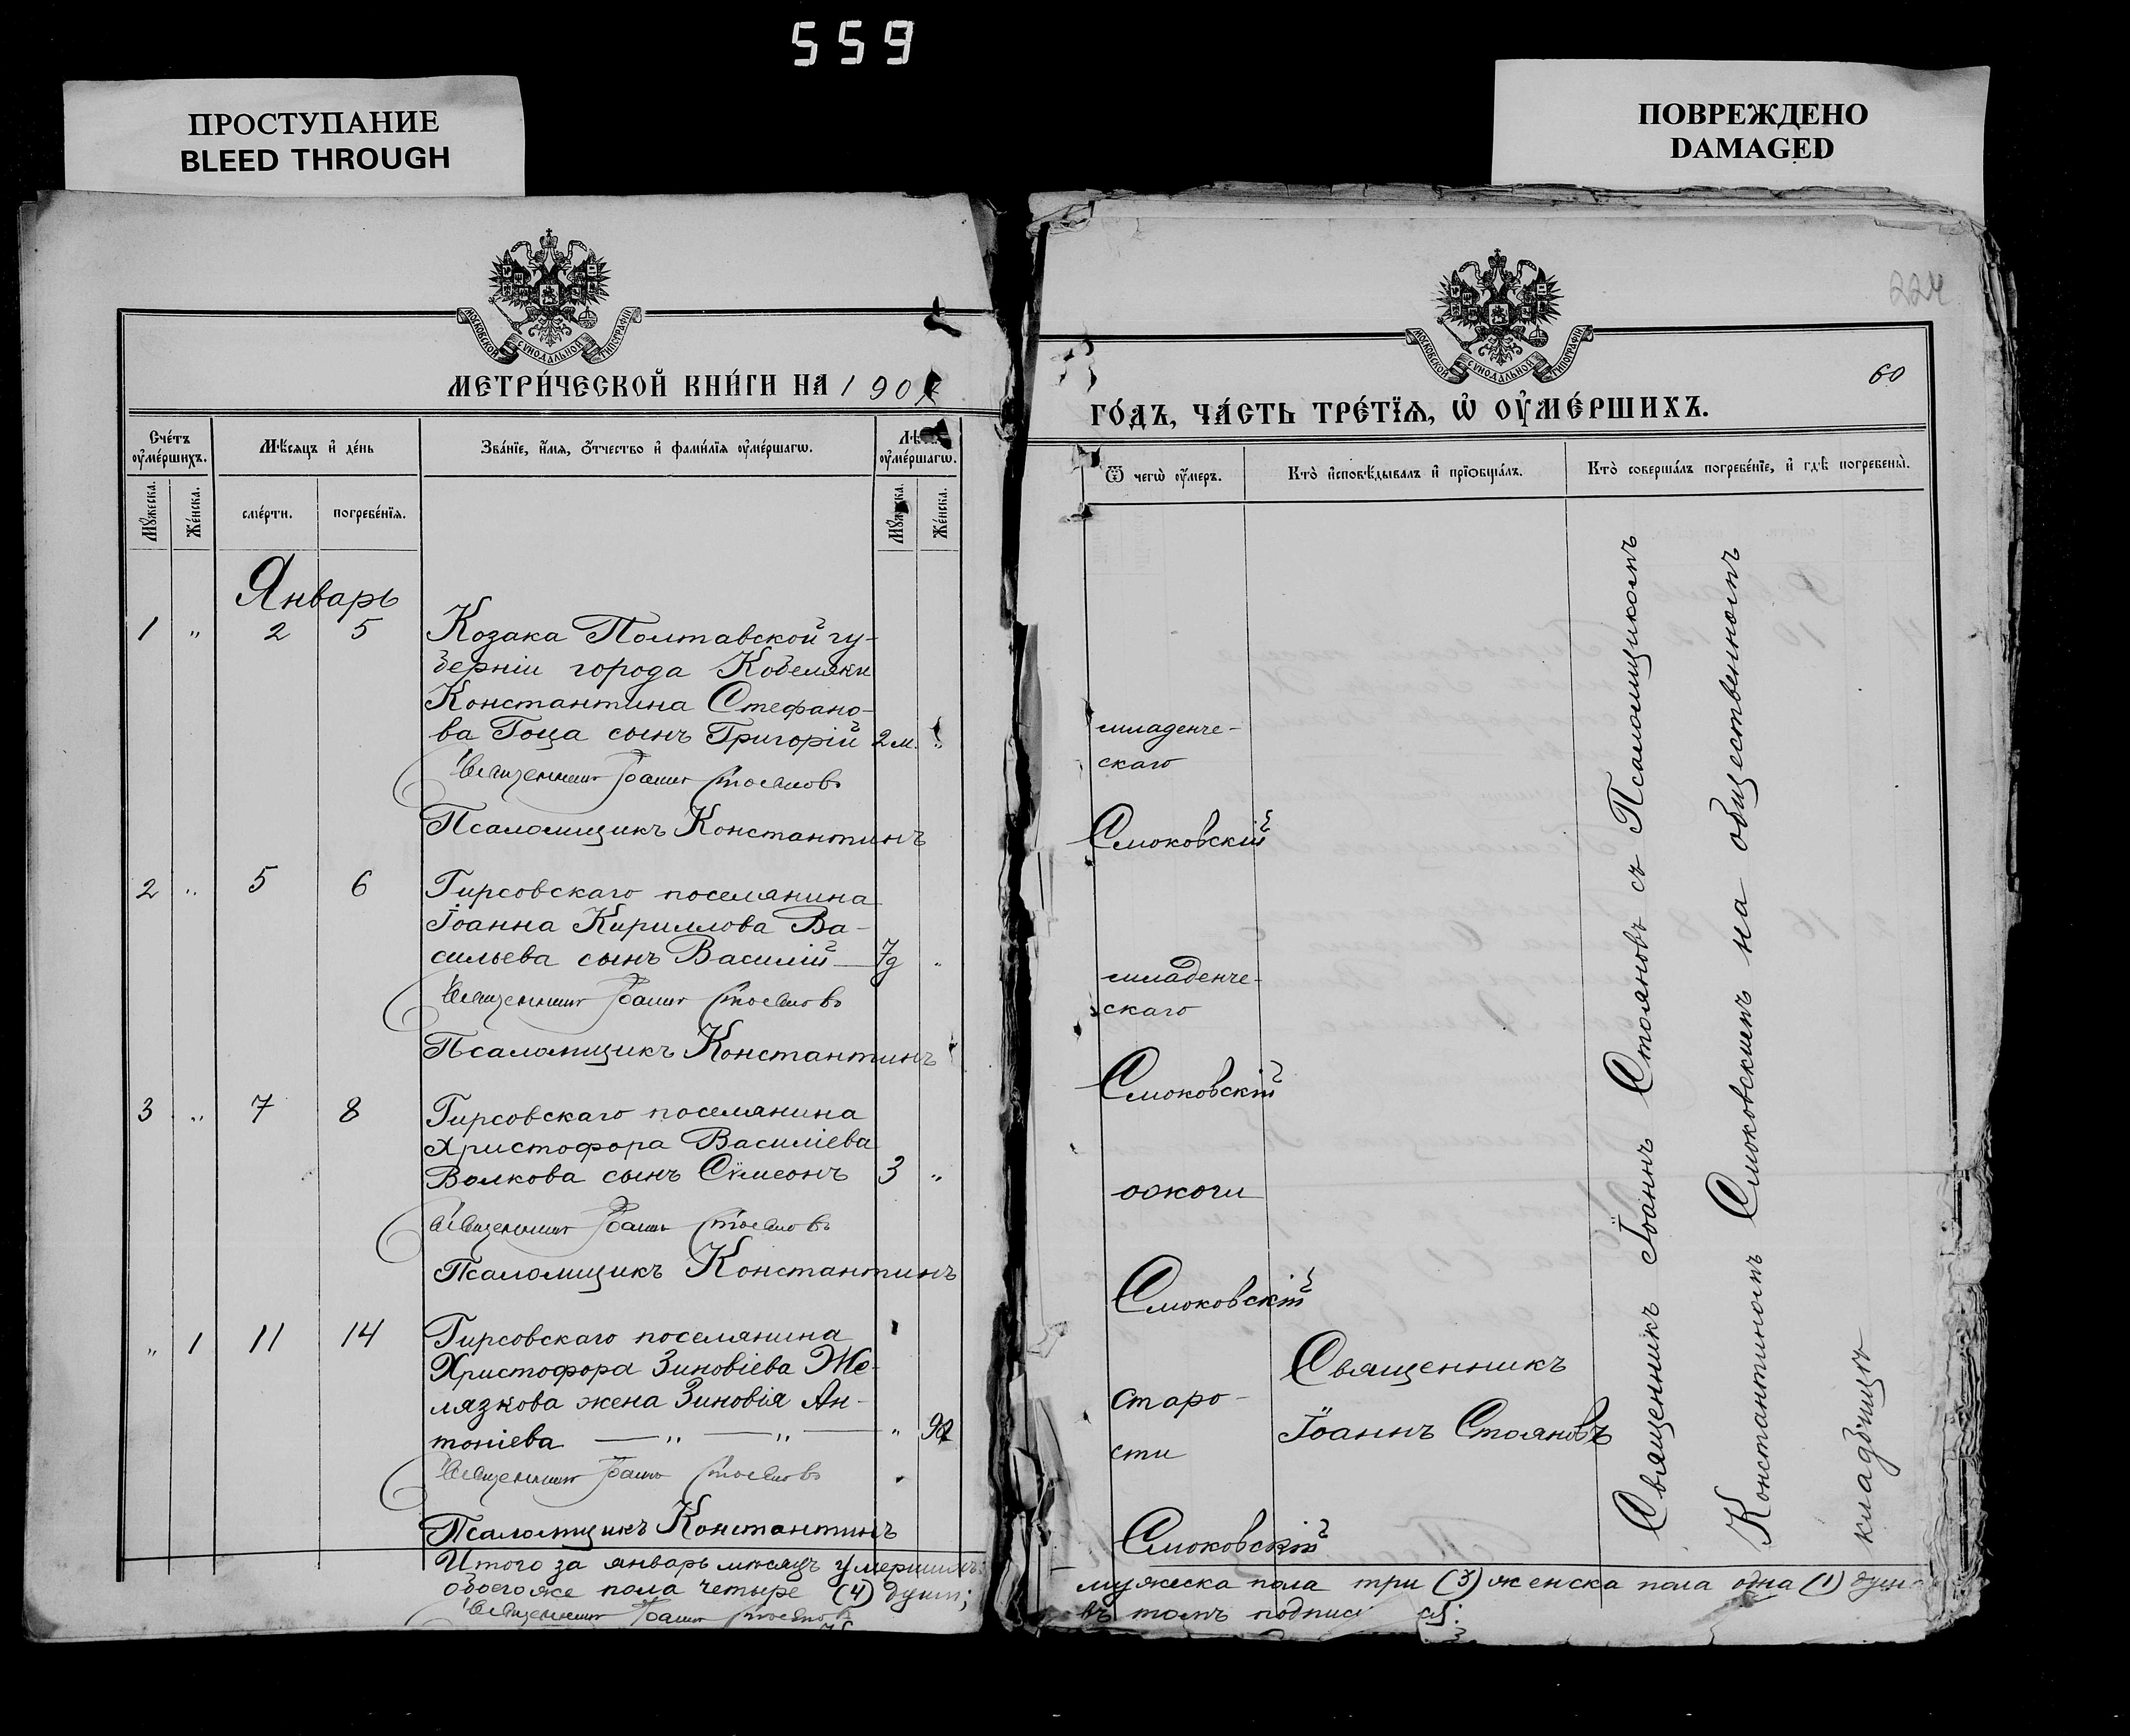 559
ПРОСТУПАНИЕ
BLEED THROUGH
ПОВРЕЖДЕНО
DAMAGED
МОСКОВСКОЙ СѴНОДАЛЬНОЙ ТИПОГРАФІИ
МЕТРИ́ЧЕСКОЙ КНИ́ГИ НА 190
Сче́тъ ᲂу҆ме́ршихъ.
Мꙋ́жеска.
Же́нска.
Мѣ́сяцъ и҆ де́нь
сме́рти.
погребе́нїя.
Зва́нїе, и҆́мя, ѻ҆́тчество и҆ фами́лїя ᲂу҆ме́ршагѡ.
ᲂу҆ме́ршагѡ.
Мꙋ́жеска.
Же́нска.
Январь
1 " 2 5 Козака Полтавской гу-
берніи города Кобеляки
Константина Стефано-
ва Гоца сынъ Григорій 2 м. "
Священникъ Іоаннъ Стояновъ
Псаломщикъ Константинъ
2 " 5 6 Гирсовскаго поселянина
Іоанна Кириллова Ва-
сильева сынъ Василій — 7д "
Священникъ Іоаннъ Стояновъ
Псаломщикъ Константинъ
3 " 7 8 Гирсовскаго поселянина
Христофора Василіева
Волкова сынъ Сѵмеонъ 3 "
Священникъ Іоаннъ Стояновъ
Псаломщикъ Константинъ
" 1 11 14 Гирсовскаго поселянина
Христофора Зиновіева Же-
лязкова жена Зиновія Ан-
тоніева — " — " — "
Священникъ Іоаннъ Стояновъ
Псаломщикъ Константинъ
Итого за январь мѣсяцъ умершихъ:
обоего же пола четыре (4) души;
Священникъ Іоаннъ Стояновъ
224
МОСКОВСКОЙ СѴНОДАЛЬНОЙ ТИПОГРАФІИ
60
ГО́ДЪ, ЧА́СТЬ ТРЕ́ТЇЯ, Ѡ҆ ОУ҆МЕ́РШИХЪ.
Ѿ чегѡ̀ ᲂу҆́меръ.
Кто̀ и҆сповѣ́дывалъ и҆ прїѡбща́лъ.
Кто̀ соверша́лъ погребе́нїе, и҆ гдѣ̀ погребены̀.
младенче-
скаго
Смоковскій
младенче-
скаго
Смоковскій
ожоги
Смоковскій
старо-
сти
Священникъ
Іоаннъ Стояновъ
Смоковскій
Священникъ Іоаннъ Стояновъ съ Псаломщикомъ
Константиномъ Смоковскимъ на общественномъ
кладбищѣ
мужеска пола три (3) женска пола одна (1) душа
въ томъ подписи